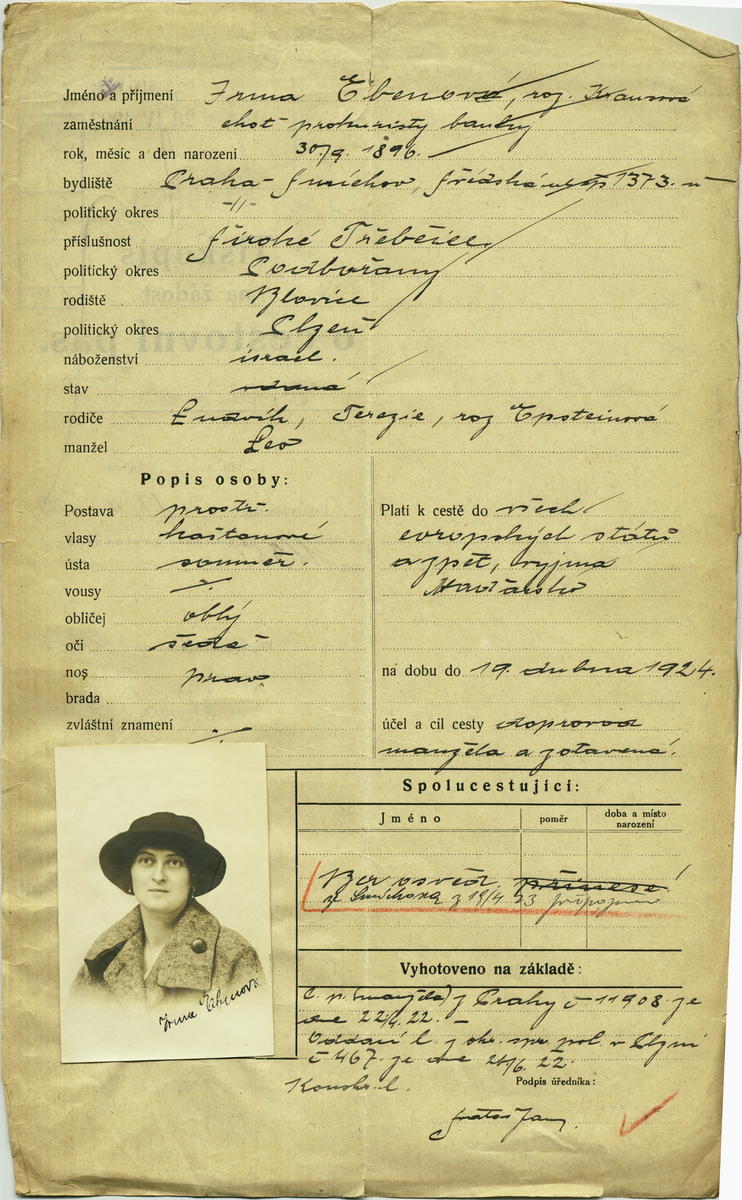 Jméno a příjmení Irma Ebenová, roz. Krausová
zaměstnání choť prokuristy banky
rok, měsíc a den narození 30/9. 1896.
bydliště Praha-Smíchov, 1373.
politický okres -//-
příslušnost Široké Třebčice
politický okres Podbořany
rodiště Blovice
politický okres Plzeň
náboženství israel.
stav vdaná
rodiče Ludvík, Terezie, roz Epsteinová
manžel Leo
Popis osoby:
Postava prostř.
vlasy kaštanové
ústa souměr.
vousy ./.
obličej oblý
oči šedé
nos prav.
brada
zvláštní znamení ./.
Platí k cestě do všech
evropských států
a zpět, vyjma
Maďarsko
na dobu do 19. dubna 1924.
účel a cíl cesty doprovod
manžela a zotavená.
Spolucestující:
Jméno poměr doba a místo
narození
Ber osvěd přinese
ze Smíchova z 19/4 23 připojeno
Vyhotoveno na základě:
C. p. (manžela) z Prahy č 11908 je
dne 22/4. 22. –
Oddací l. z okr. spr. pol. v Plzni
č 467. je dne 26/6. 22.
Podpis úředníka:
Irma Ebenová